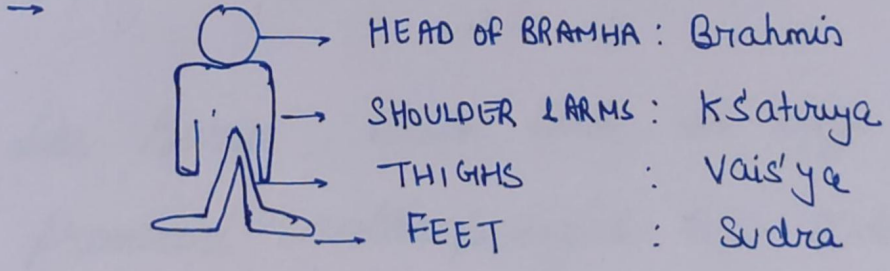 HEAD OF BRAMHA : Brahmis
SHOULDER & ARMS : Kśatriya
THIGHS : Vaiś'ya
FEET : Sudra